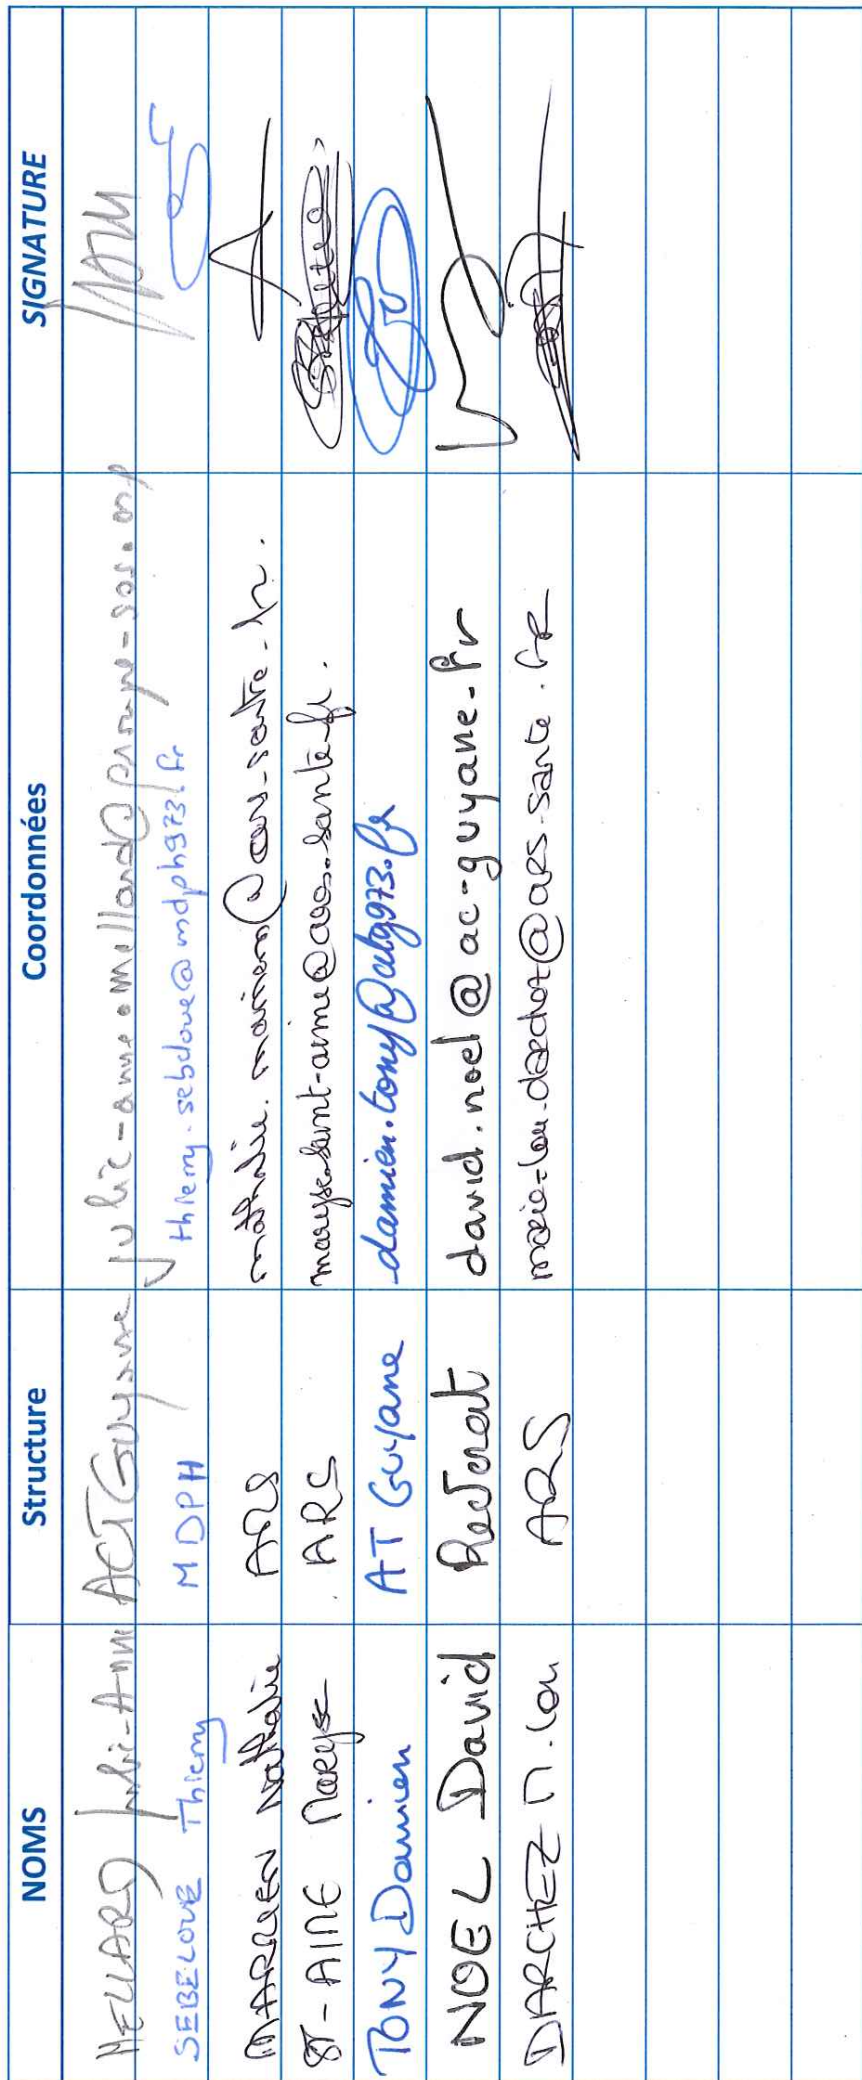 NOMS Structure Coordonnées SIGNATURE
MELLARD Julie-Anne ACT Guyane julie-anne.mellard@groupe-sos.org
SEBELOUE Thierry MDPH thierry.sebeloue@mdph973.fr
MARRIEN Nathalie ARS
ST-AIME Maryse ARS maryse.saint-aime@ars.sante.fr.
TONY Damien AT Guyane damien.tony@ctg973.fr
NOEL David Rectorat david.noel@ac-guyane.fr
DARCHEZ M.Lou ARS marie-lou.darchez@ars.sante.fr